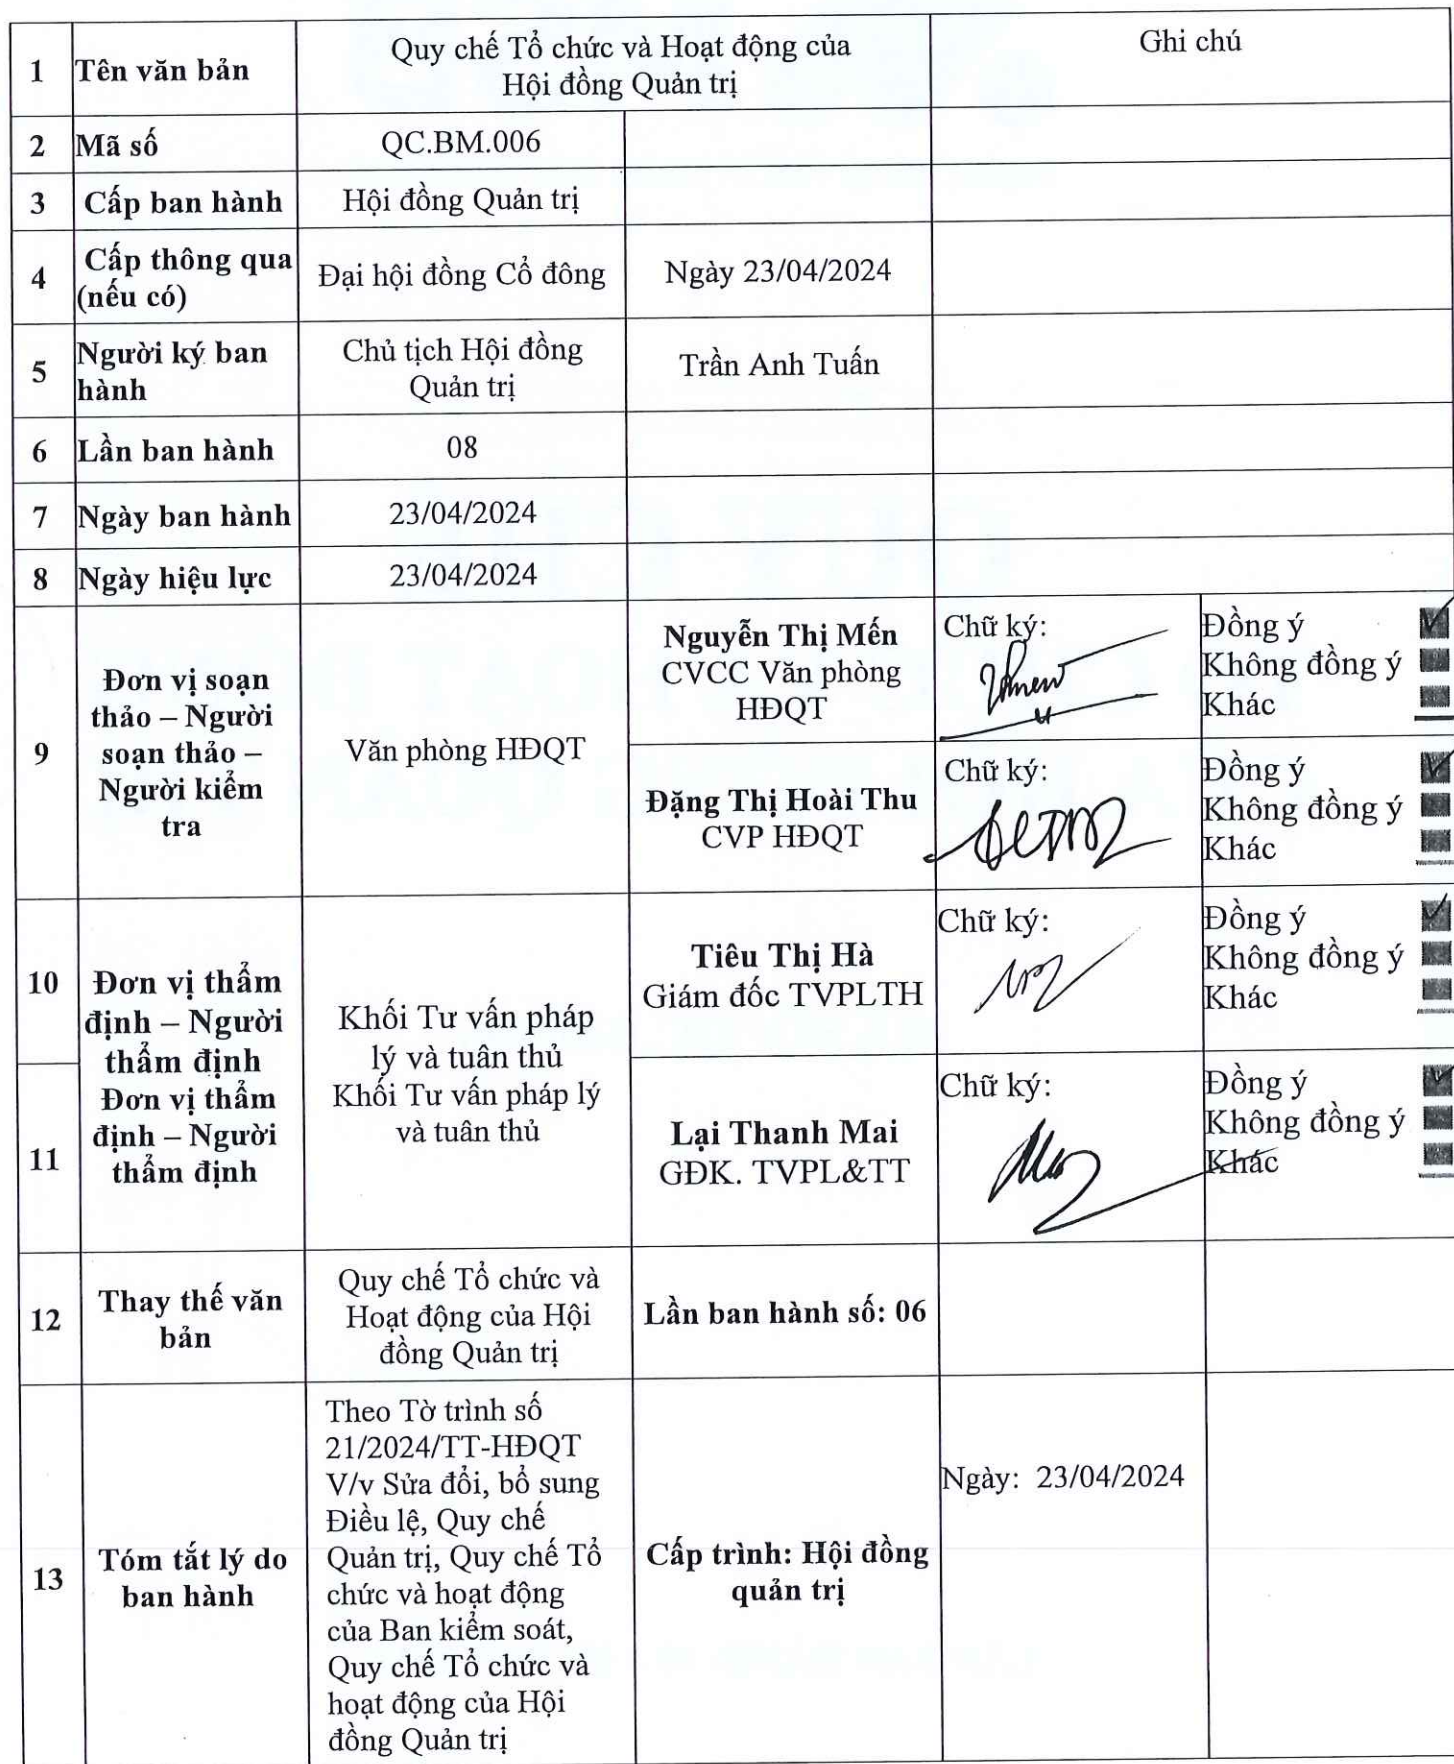 1
Tên văn bản
Quy chế Tổ chức và Hoạt động của
Hội đồng Quản trị
Ghi chú
2
Mã số
QC.BM.006
3
Cấp ban hành
Hội đồng Quản trị
4
Cấp thông qua
(nếu có)
Đại hội đồng Cổ đông
Ngày 23/04/2024
5
Người ký ban
hành
Chủ tịch Hội đồng
Quản trị
Trần Anh Tuấn
6
Lần ban hành
08
7
Ngày ban hành
23/04/2024
8
Ngày hiệu lực
23/04/2024
9
Đơn vị soạn
thảo – Người
soạn thảo –
Người kiểm
tra
Văn phòng HĐQT
Nguyễn Thị Mến
CVCC Văn phòng
HĐQT
Chữ ký:
Đồng ý
Không đồng ý
Khác
Đặng Thị Hoài Thu
CVP HĐQT
Chữ ký:
Đồng ý
Không đồng ý
Khác
10
Đơn vị thẩm
định – Người
thẩm định
Khối Tư vấn pháp
lý và tuân thủ
Tiêu Thị Hà
Giám đốc TVPLTH
Chữ ký:
Đồng ý
Không đồng ý
Khác
11
Đơn vị thẩm
định – Người
thẩm định
Khối Tư vấn pháp lý
và tuân thủ
Lại Thanh Mai
GĐK. TVPL&TT
Chữ ký:
Đồng ý
Không đồng ý
Khác
12
Thay thế văn
bản
Quy chế Tổ chức và
Hoạt động của Hội
đồng Quản trị
Lần ban hành số: 06
13
Tóm tắt lý do
ban hành
Theo Tờ trình số
21/2024/TT-HĐQT
V/v Sửa đổi, bổ sung
Điều lệ, Quy chế
Quản trị, Quy chế Tổ
chức và hoạt động
của Ban kiểm soát,
Quy chế Tổ chức và
hoạt động của Hội
đồng Quản trị
Cấp trình: Hội đồng
quản trị
Ngày: 23/04/2024